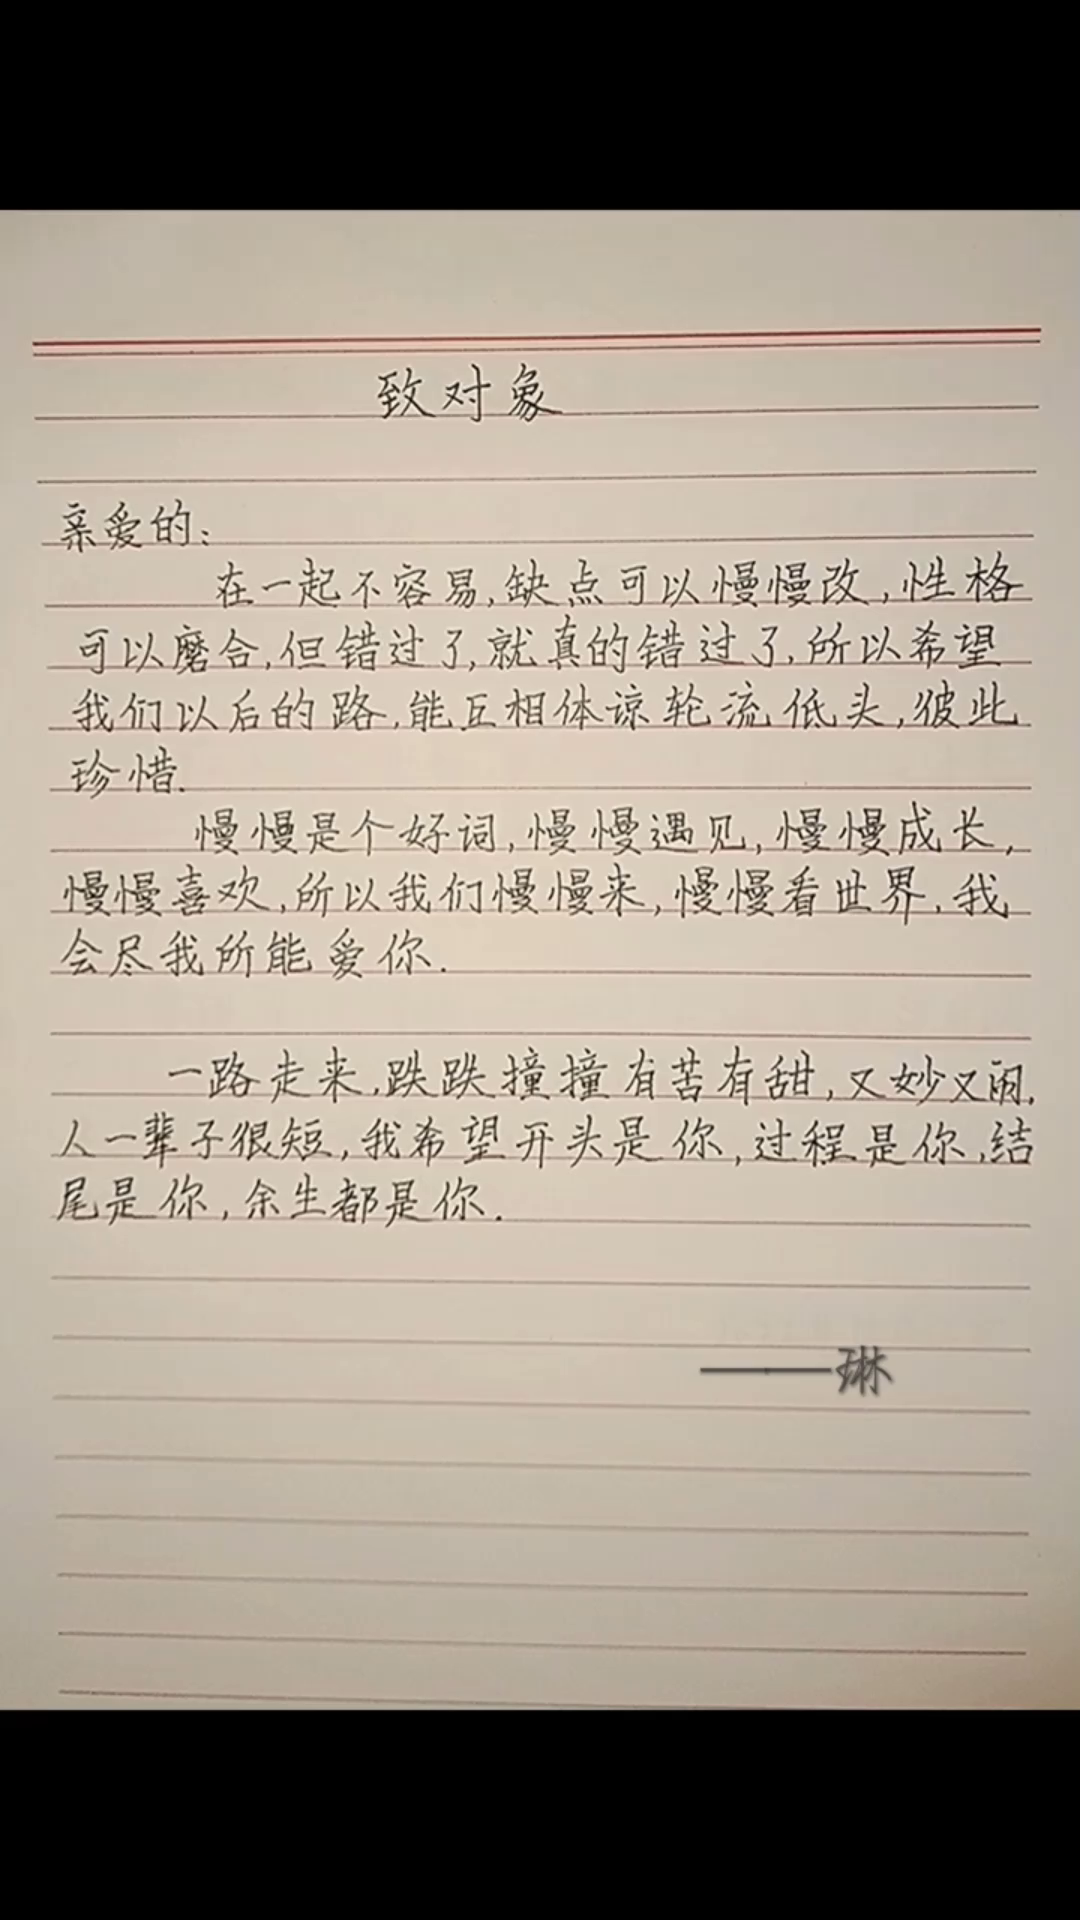 致对象
亲爱的:
在一起不容易,缺点可以慢慢改,性格
可以磨合,但错过了,就真的错过了.所以希望
我们以后的路,能互相体谅轮流低头,彼此
珍惜.
慢慢是个好词,慢慢遇见,慢慢成长,
慢慢喜欢,所以我们慢慢来,慢慢看世界.我
会尽我所能爱你.
一路走来,跌跌撞撞有苦有甜,又妙又闹.
人一辈子很短,我希望开头是你,过程是你,结
尾是你,余生都是你.
——琳